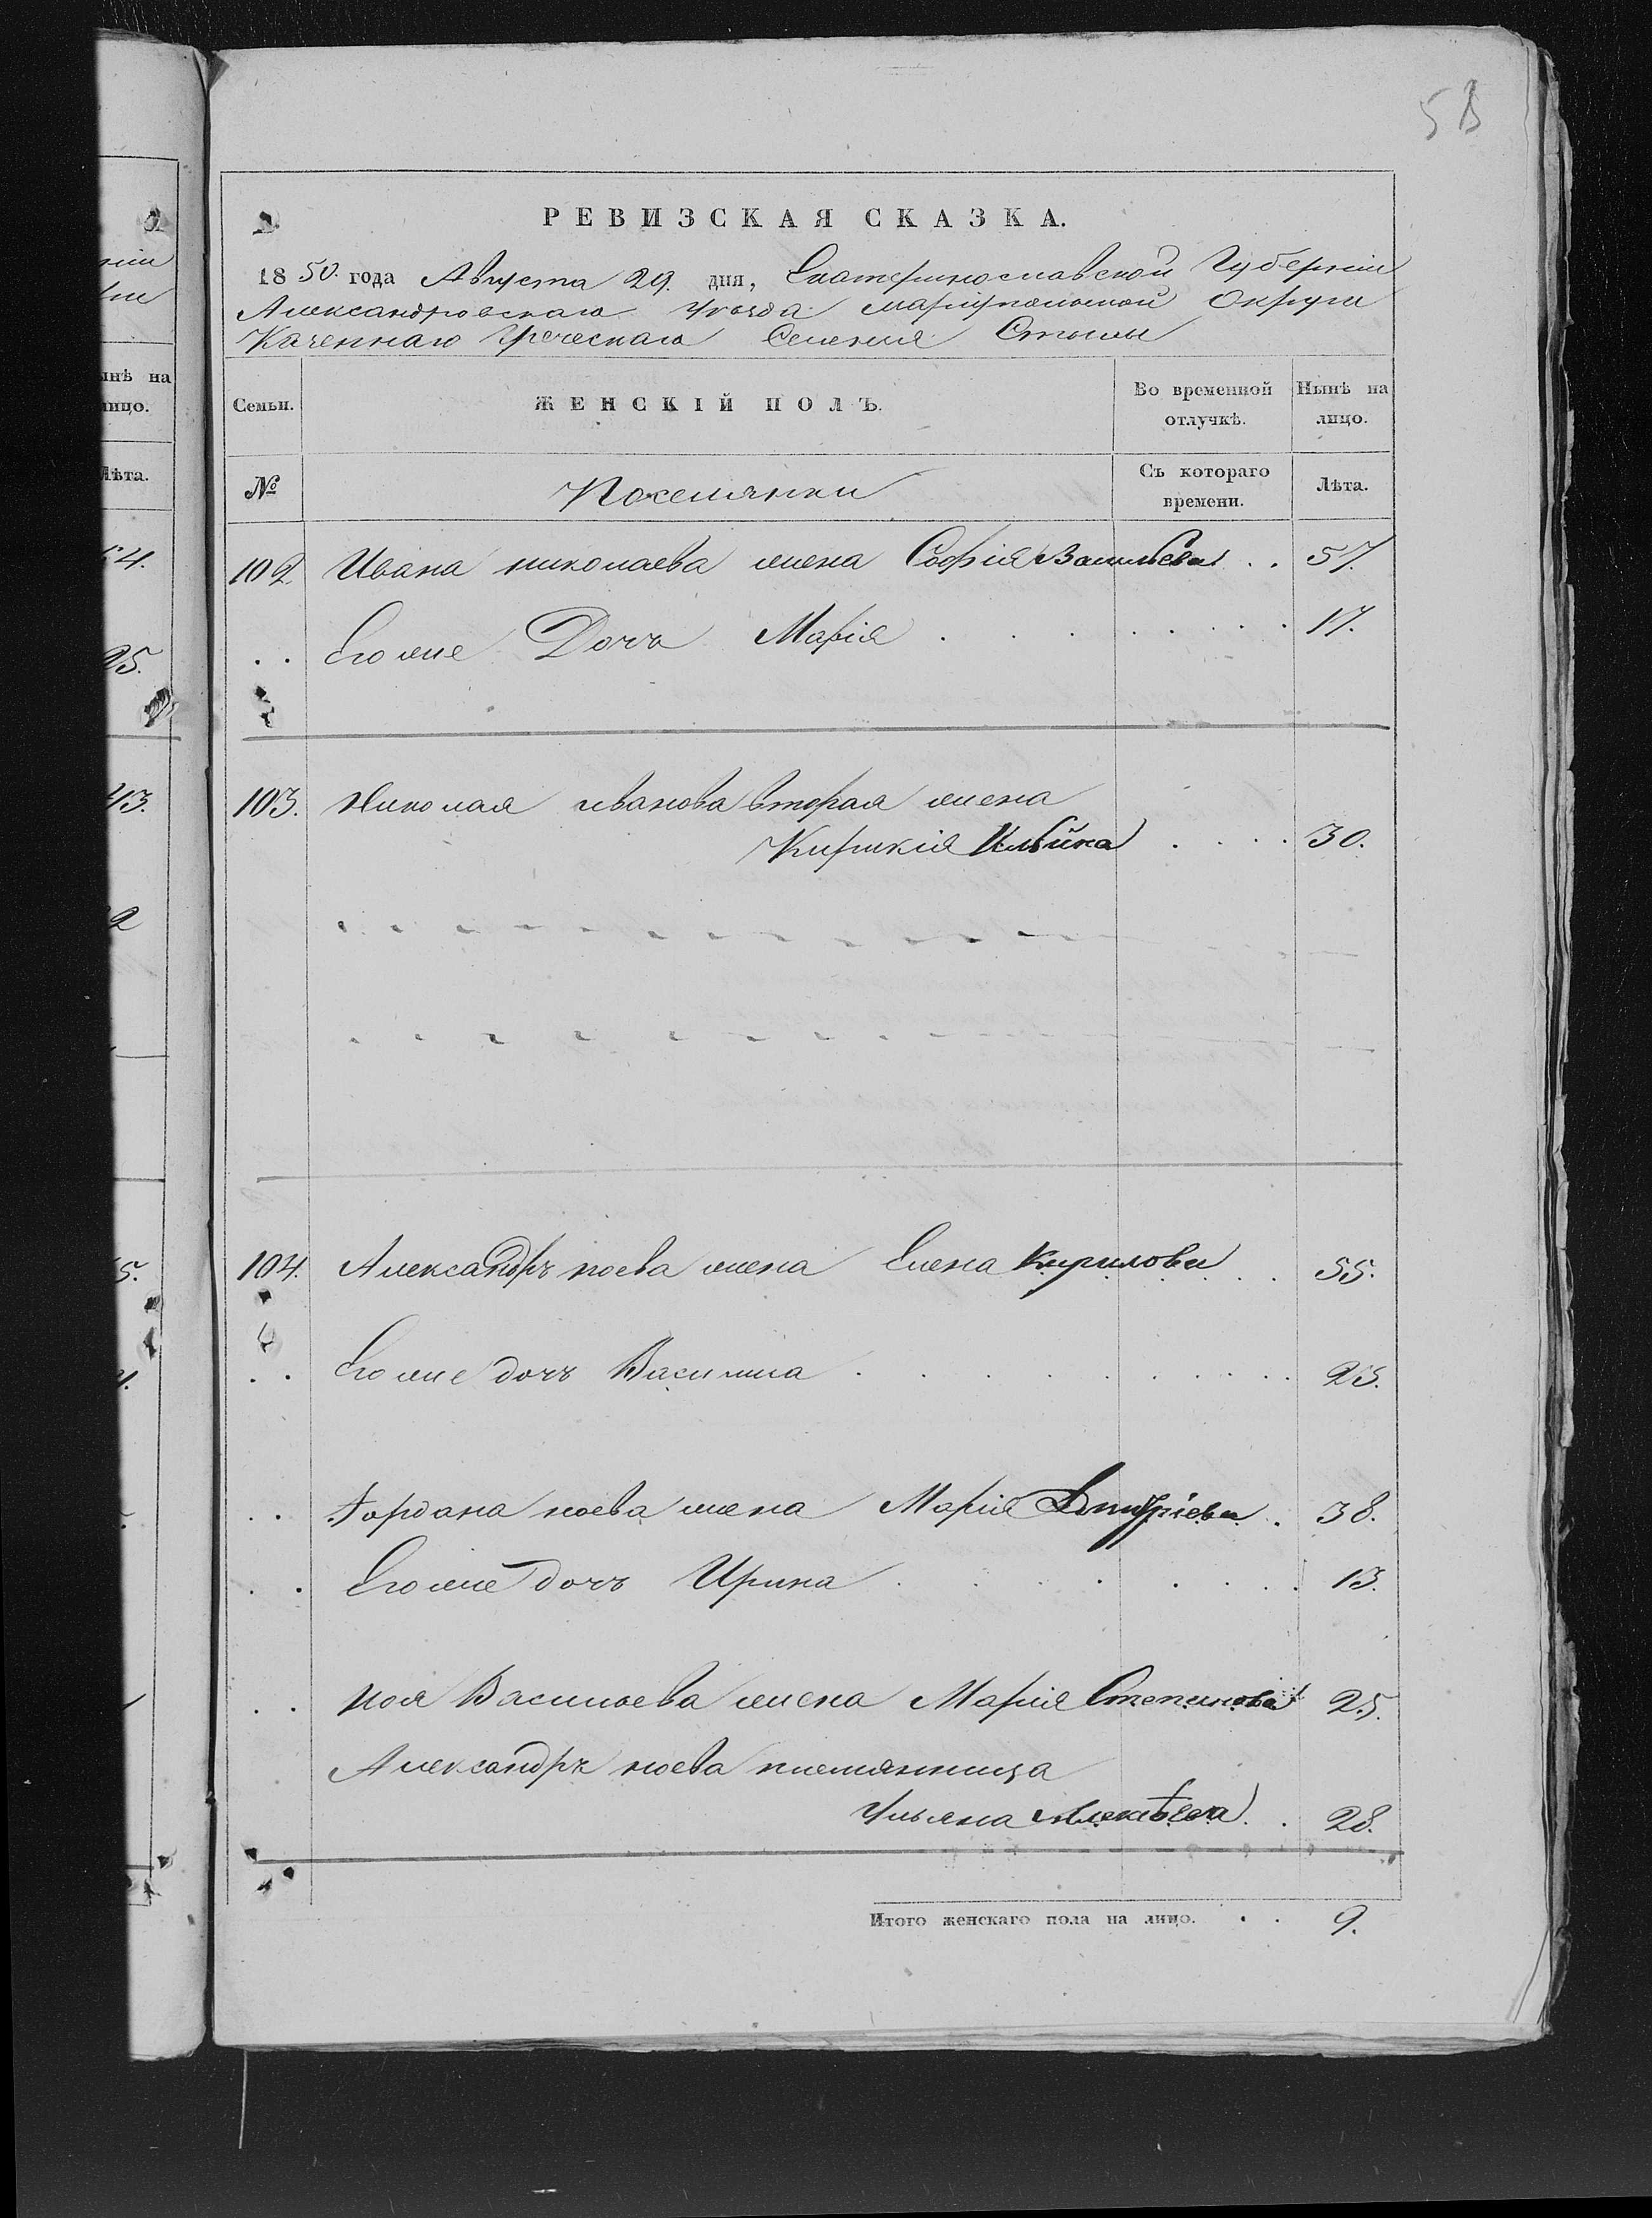 58
РЕВИЗСКАЯ СКАЗКА.
1850. года Августа 29. дня, Екатеринославской Губерніи
Александровскаго Уѣзда Маріупольской Округи
Казеннаго Греческаго Селенія Стылы
Семьи.
ЖЕНСКІЙ ПОЛЪ.
Во временной отлучкѣ.
Нынѣ на лицо.
№
Поселянки
Съ котораго времени.
Лѣта.
102 Ивана николаева жена Софія Васильева . . 57.
. . Его же Дочь Марія . . . . . . . 17.
103. Николая иванова вторая жена
Кирикія Ильина . . . . 30.
104. Александръ ноева жена Елена Кирилова . . . 55.
. . Его же дочь Василиса . . . . . . . . 23.
. . Іордана ноева жена Марія Дмитріева . 38.
. . Его же дочь Ирина . . . . . . . 13.
. . Ноя Васильева жена Марія Степанова 25.
Александръ ноева племянница
Ульяна Алексѣева . . 28.
Итого женскаго пола на лицо. . . 9.